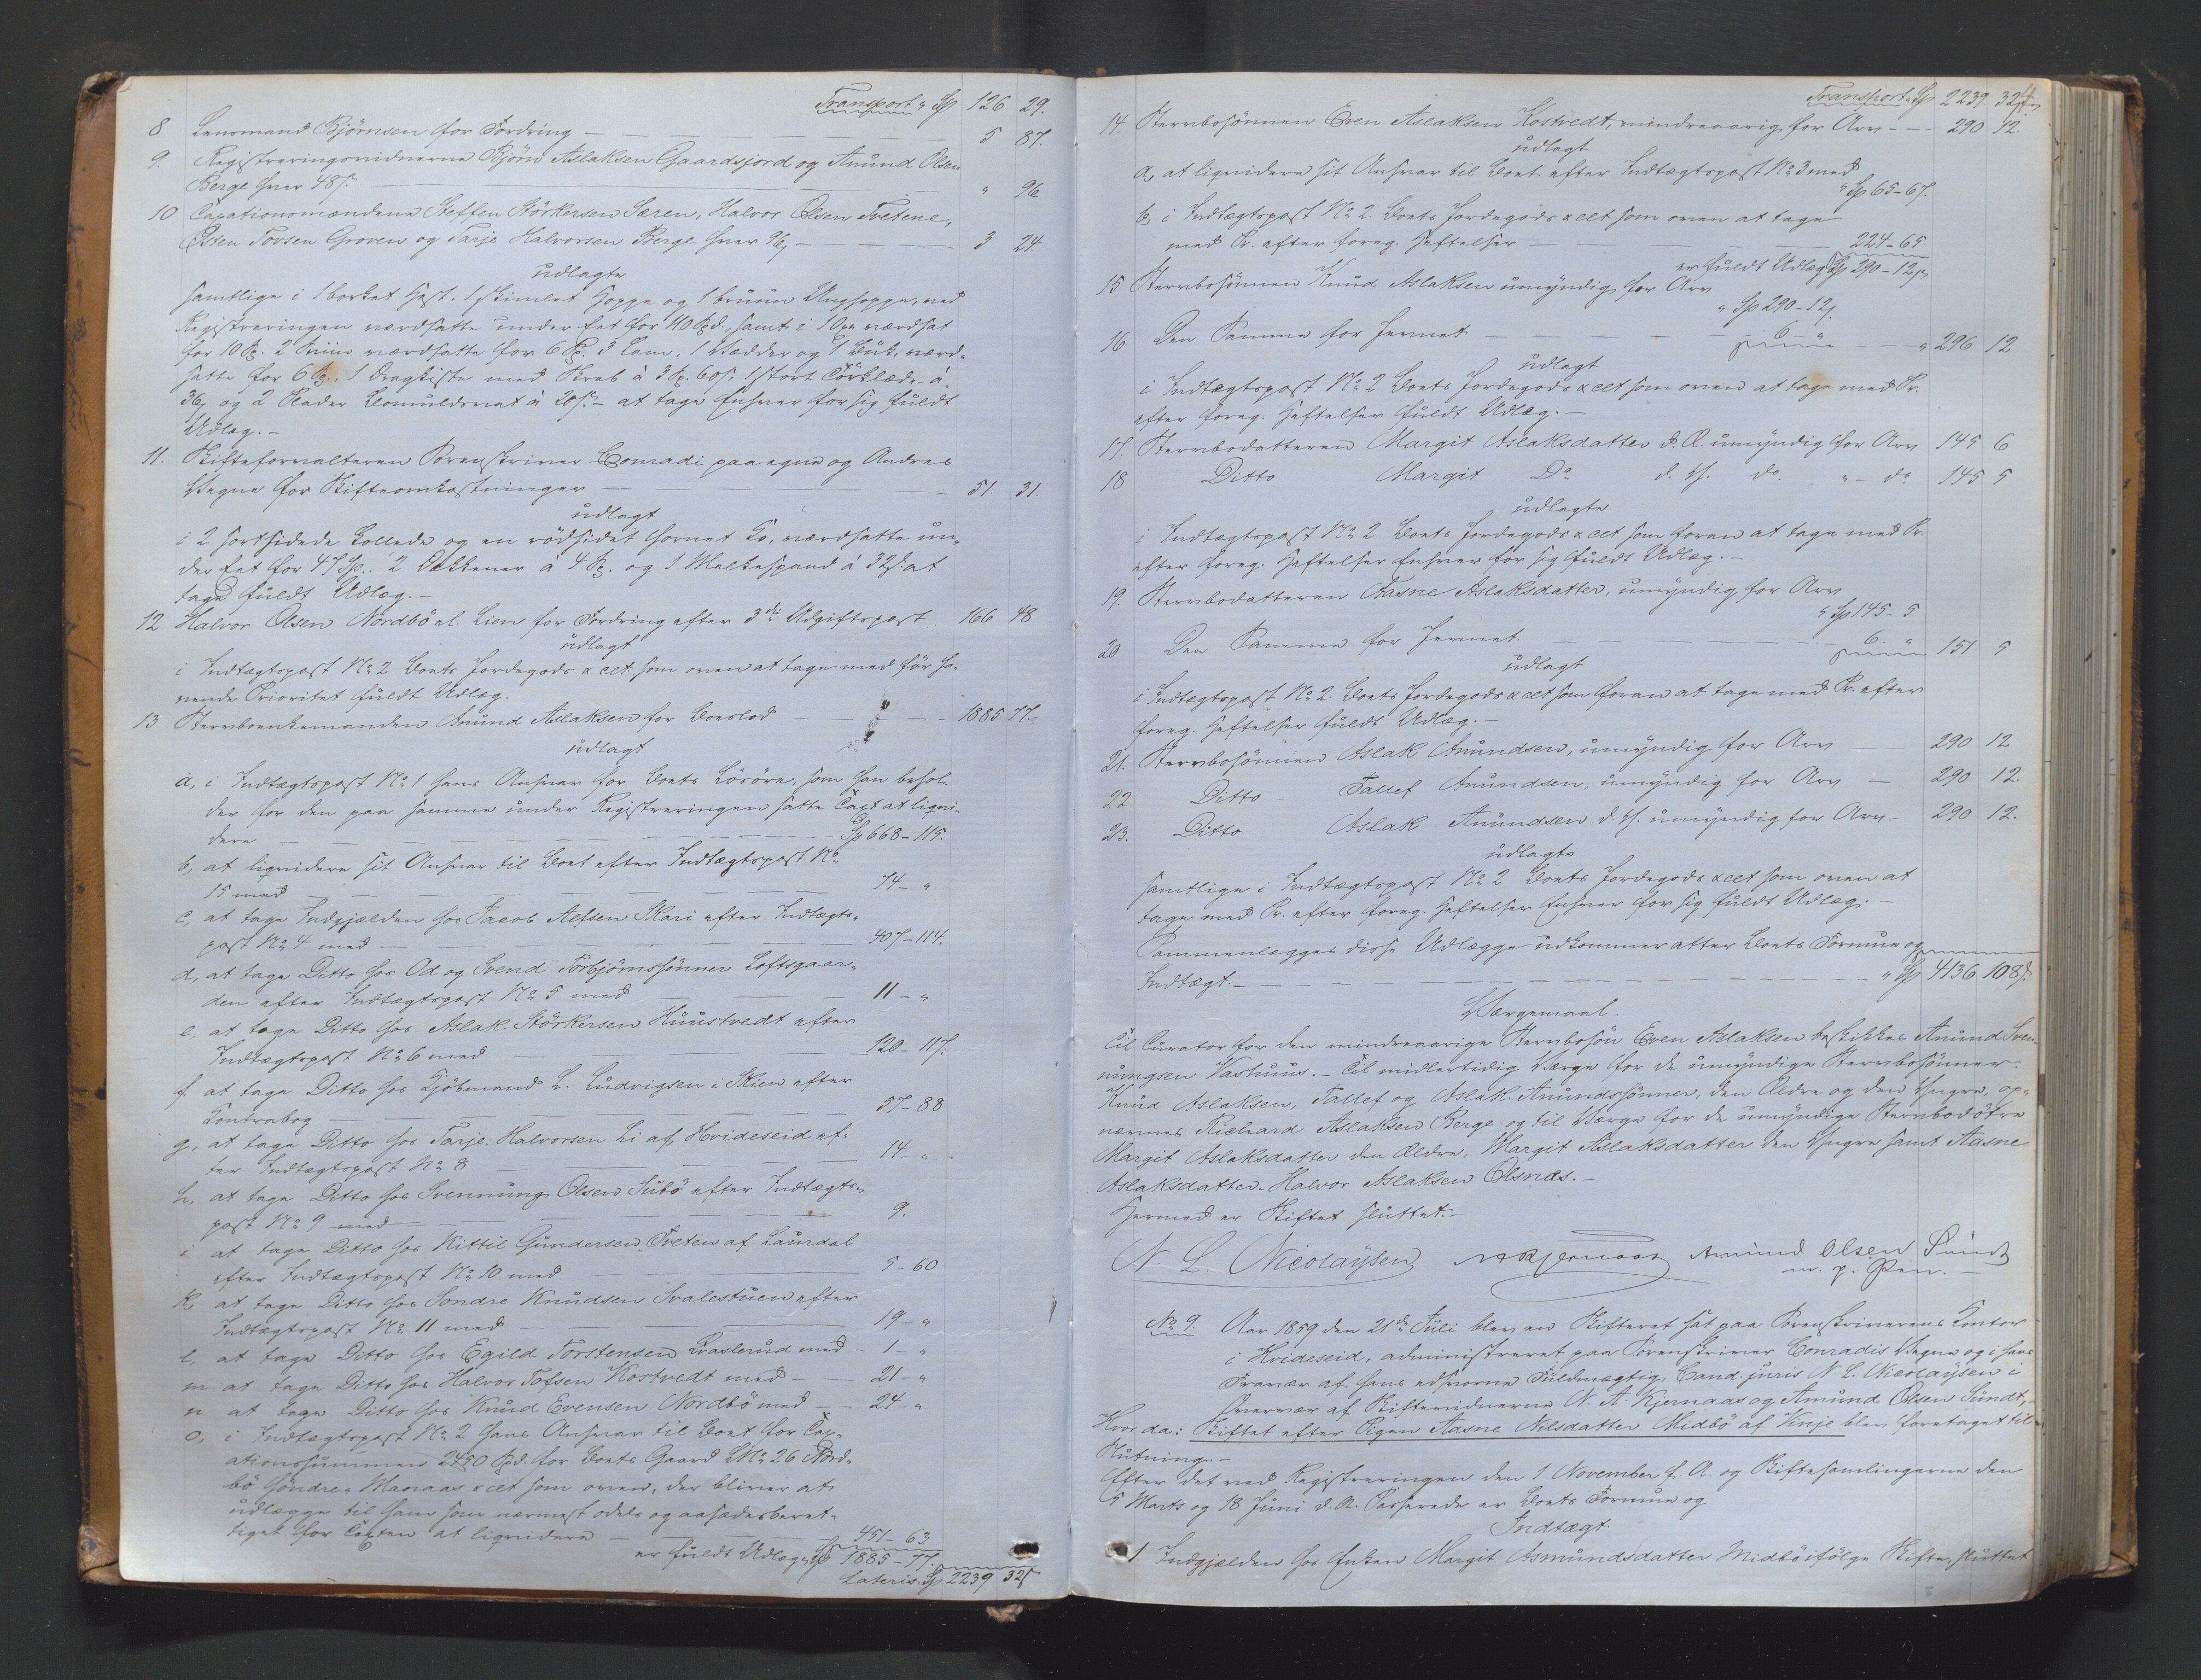 Transport " Sp 126 29.
8 Lensmand Björnsen for Fordring 5 87.
9 Registreringsvidnerne Björn Aslaksen Gaardsjord og Anund Olsen
Berge hver 48 s. " 96
10 Taxationsmændene Steffen Störkersen Særen, Halvor Olsen Tvetene,
Östen Tovsen Groven og Tarje Halvorsen Berge hver 96, 3 24.
udlagte
samtlige i 1 borket Hest, 1 skimlet Hoppe og 1 bruun Unghoppe, ved
Registreringen værdsatte under eet for 110 Spd., samt i 1 Oxe værdsat
for 10 Sp. 2 Sviin værdsatte for 6 Sp. 3 Lam, 1 Vædder og 1 Buk, værd-
satte for 6 Sp., 1 Dragkiste med Skab á 3 Sp. 60 s. 1 stort Törklæde á
36, og 2 Klader Bomuldsvat á 20 s. - at tage Enhver for sig fuldt
Udlæg. -
11. Skifteforvalteren Sorenskriver Conradi paa egne og Andres
Vegne for Skifteomkostninger 51. 31.
udlagt
i 2 sortsidede kollede og en rödsidet hornet Ko, værdsatte un-
der eet for 47 Sp. 2 Dækkener á 4 Sp. og 1 Melkespand á 32 s. at
tage fuldt Udlæg. -
12. Halvor Olsen Nordbö el. Lien for Fordring efter 3die Udgiftspost 166 48
udlagt
i Indtægtspost No 2 Boets Jordegods & cet som oven at tage med för ha-
vende Prioritet fuldt Udlæg.
13 Stervboenkemanden Anund Aslaksen for Boeslod 1885 77.
udlagt
a, i Indtægtspost No 1 hans Ansvar for Boets Lösöre, som han behol-
der for den paa samme under Registreringen satte Taxt at liqvi-
dere Sp 668 - 115.
b, at liqvidere sit Ansvar til Boet efter Indtægtspost No
15 med 74 - "
c, at tage Indgjælden hos Jacob Alfsen Skari efter Indtægts-
post No 4 med 407 - 114.
d, at tage Ditto hos Od og Svend Torbjörnssönner Loftsgaar-
den efter Indtægtspost No 5 med 11 - "
e. at tage Ditto hos Aslak Störkersen Huustvedt efter
Indtægtspost No 6 med 120 - 117.
f at tage Ditto hos Kjöbmand L. Ludvigsen i Skien efter
Contrabog 57 - 88
g, at tage Ditto hos Tarje Halvorsen Li af Hvideseid ef-
ter Indtægtspost No 8 14 - "
h, at tage Ditto hos Svennung Olsen Subö efter Indtægts-
post No 9 med 9.
i at tage Ditto hos Kittil Gundersen Tveten af Laurdal
efter Indtægtspost No 10 med 5 - 60
k, at tage Ditto hos Sondre Knudsen Svalestuen efter
Indtægtspost No 11 med 19 - "
l, at tage Ditto hos Egild Torstensen Braslerud med - 1 - "
m at tage Ditto hos Halvor Tofsen Kostvedt med - 21 - "
n at tage Ditto hos Knud Evensen Nordbö med - 24 - "
o, i Indtægtspost No 2 hans Ansvar til Boet for Tax-
ationssummen 2450 Spd. for Boets Gaard LNo 26 Nord-
bö söndre, Manaas & cet som oven, der bliver at
udlægge til ham som nærmest odels og aasædesberet-
tiget for Taxten at liqvidere 451 - 63
er fuldt Udlæg " Sp 1885 - 77.
Lateris. Sp 2239 32 s
4
Transport. Sp 2239. 32 s
14. Stervbosönnen Even Aslaksen Kostvedt, mindreaarig for Arv - 290 12.
udlagt
a, at liqvidere sit Ansvar til Boet efter Indtægtspost No 3 med
" Sp 65 - 67.
b, i Indtægtspost No 2. Boets Jordegods & cet som oven at tage
med Pr. efter foreg. Heftelser 224 - 65
er fuldt Udlæg Sp 290 - 12 s
15 Stervbosönnen Knud Aslaksen umyndig for Arv
" Sp 290 - 12 s.
16 Den Samme for Jevnet 6 - " " 296 12
udlagt
i Indtægtspost No 2 Boets Jordegods & cet som oven at tage med Pr.
efter foreg. Heftelser fuldt Udlæg. -
17. Stervbodatteren Margit Aslaksdatter d. Æ. umyndig for Arv 145 6
18 Ditto Margit Do d. Y. do. " - do 145 5
udlagte
i Indtægtspost No 2 Boets Jordegods & cet som foran at tage med Pr.
efter foreg. Heftelser Enhver for sig fuldt Udlæg. -
19. Stervbodatteren Aasne Aslaksdatter, umyndig for Arv
" Sp 145 - 5
20 Den Samme for Jevnet. 6. " 151 5
udlagt
i Indtægtspost No 2. Boets Jordegods & cet som foran at tage med Pr. efter
foreg. Heftelser fuldt Udlæg. -
21. Stervbosönnen Aslak Anundsen, umyndig for Arv 290 12
22 Ditto Tallef Anundsen, umyndig for Arv - 290 12.
23. Ditto Aslak Anundsen d. Y. umyndig for Arv - 290 12.
udlagte
samtlige i Indtægtspost No 2 Boets Jordegods & cet som oven at
tage med Pr. efter foreg. Heftelser Enhver for sig fuldt Udlæg. -
Sammenlægges disse Udlægge udkommer atter Boets Formue og
Indtægt. - " Sp 4136 108 s.
Værgemaal.
Til Curator for den mindreaarige Stervbosön Even Aslaksen beskikkes Anund Sven-
nungsen Vastuus. - Til midlertidig Værge for de umyndige Stervbosönner
Knud Aslaksen, Tallef og Aslak Anundssönner, den Ældre og den Yngre, op-
nævnes Richard Aslaksen Berge og til Værge for de umyndige Stervbodötre
Margit Aslaksdatter den Ældre, Margit Aslaksdatter den Yngre samt Aasne
Aslaksdatter - Halvor Aslaksen Olsnæs. -
Hermed er Skiftet sluttet. -
N. L. Nicolaysen NAKjernaas Amund Olsen Sundt
m. p. Pen. -
No 9. Aar 1859 den 21de Juli blev en Skifteret sat paa Sorenskriverens Kontor
i Hvideseid, administreret paa Sorenskriver Conradis Vegne og i hans
Fravær af hans edsvorne Fuldmægtig, Cand. juris N L. Nicolaysen i
Overvær af Skiftevidnerne N. A. Kjernaas og Amund Olsen Sundt, -
Hvor da: Skiftet efter Pigen Aasne Nilsdatter Midbö af Vinje blev foretaget til
Slutning. -
Efter det ved Registreringen den 1 November f. A. og Skiftesamlingerne den
5 Marts og 18 Juni d. A. Passerede er Boets Formue og
Indtægt.
1. Indgjælden hos Enken Margit Asmundsdatter Midbö ifölge Skifte, sluttet